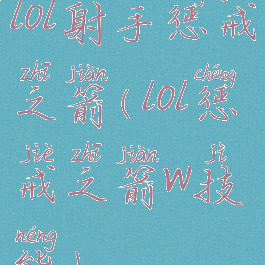 lol射手惩戒
zhī jiàn chéng
之箭(lol惩
jiè zhī jiàn jì
戒之箭w技
néng
能)